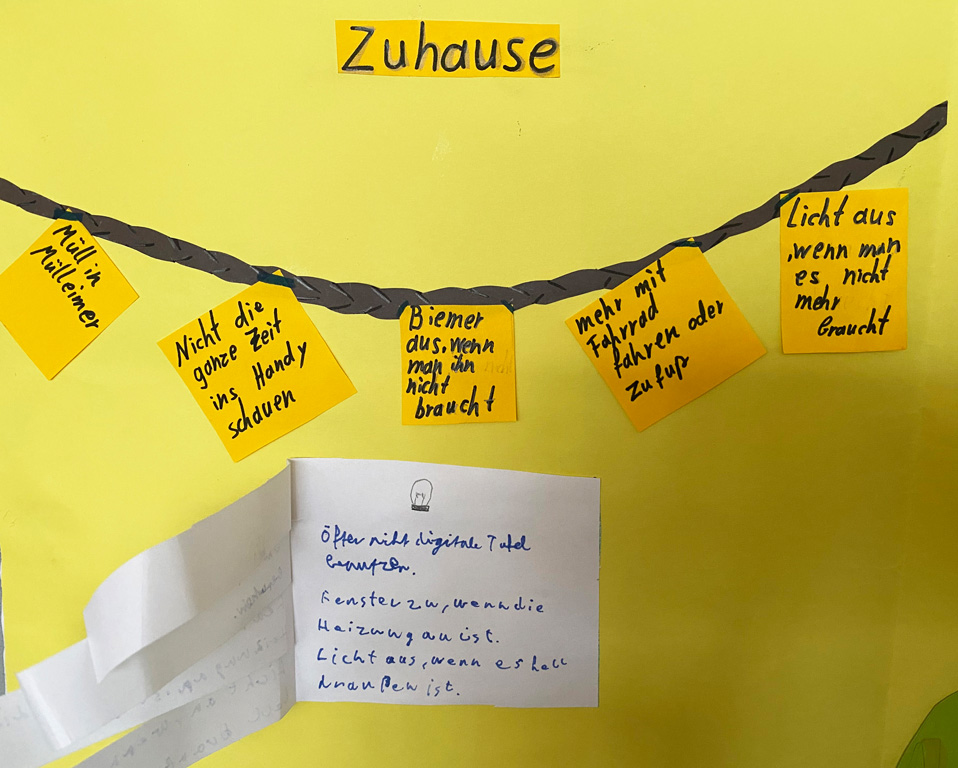 Zuhause
Müll in
Mülleimer
Nicht die
ganze Zeit
ins Handy
schauen
Biemer
aus, wenn
man ihn
nicht
braucht
mehr mit
Fahrrad
fahren oder
zu fuß
Licht aus
,wenn man
es nicht
mehr
braucht
Öfter nicht digitale Tafel
benutzen.
Fenster zu, wenn die
Heizung an ist.
Licht aus, wenn es hell
draußen ist.